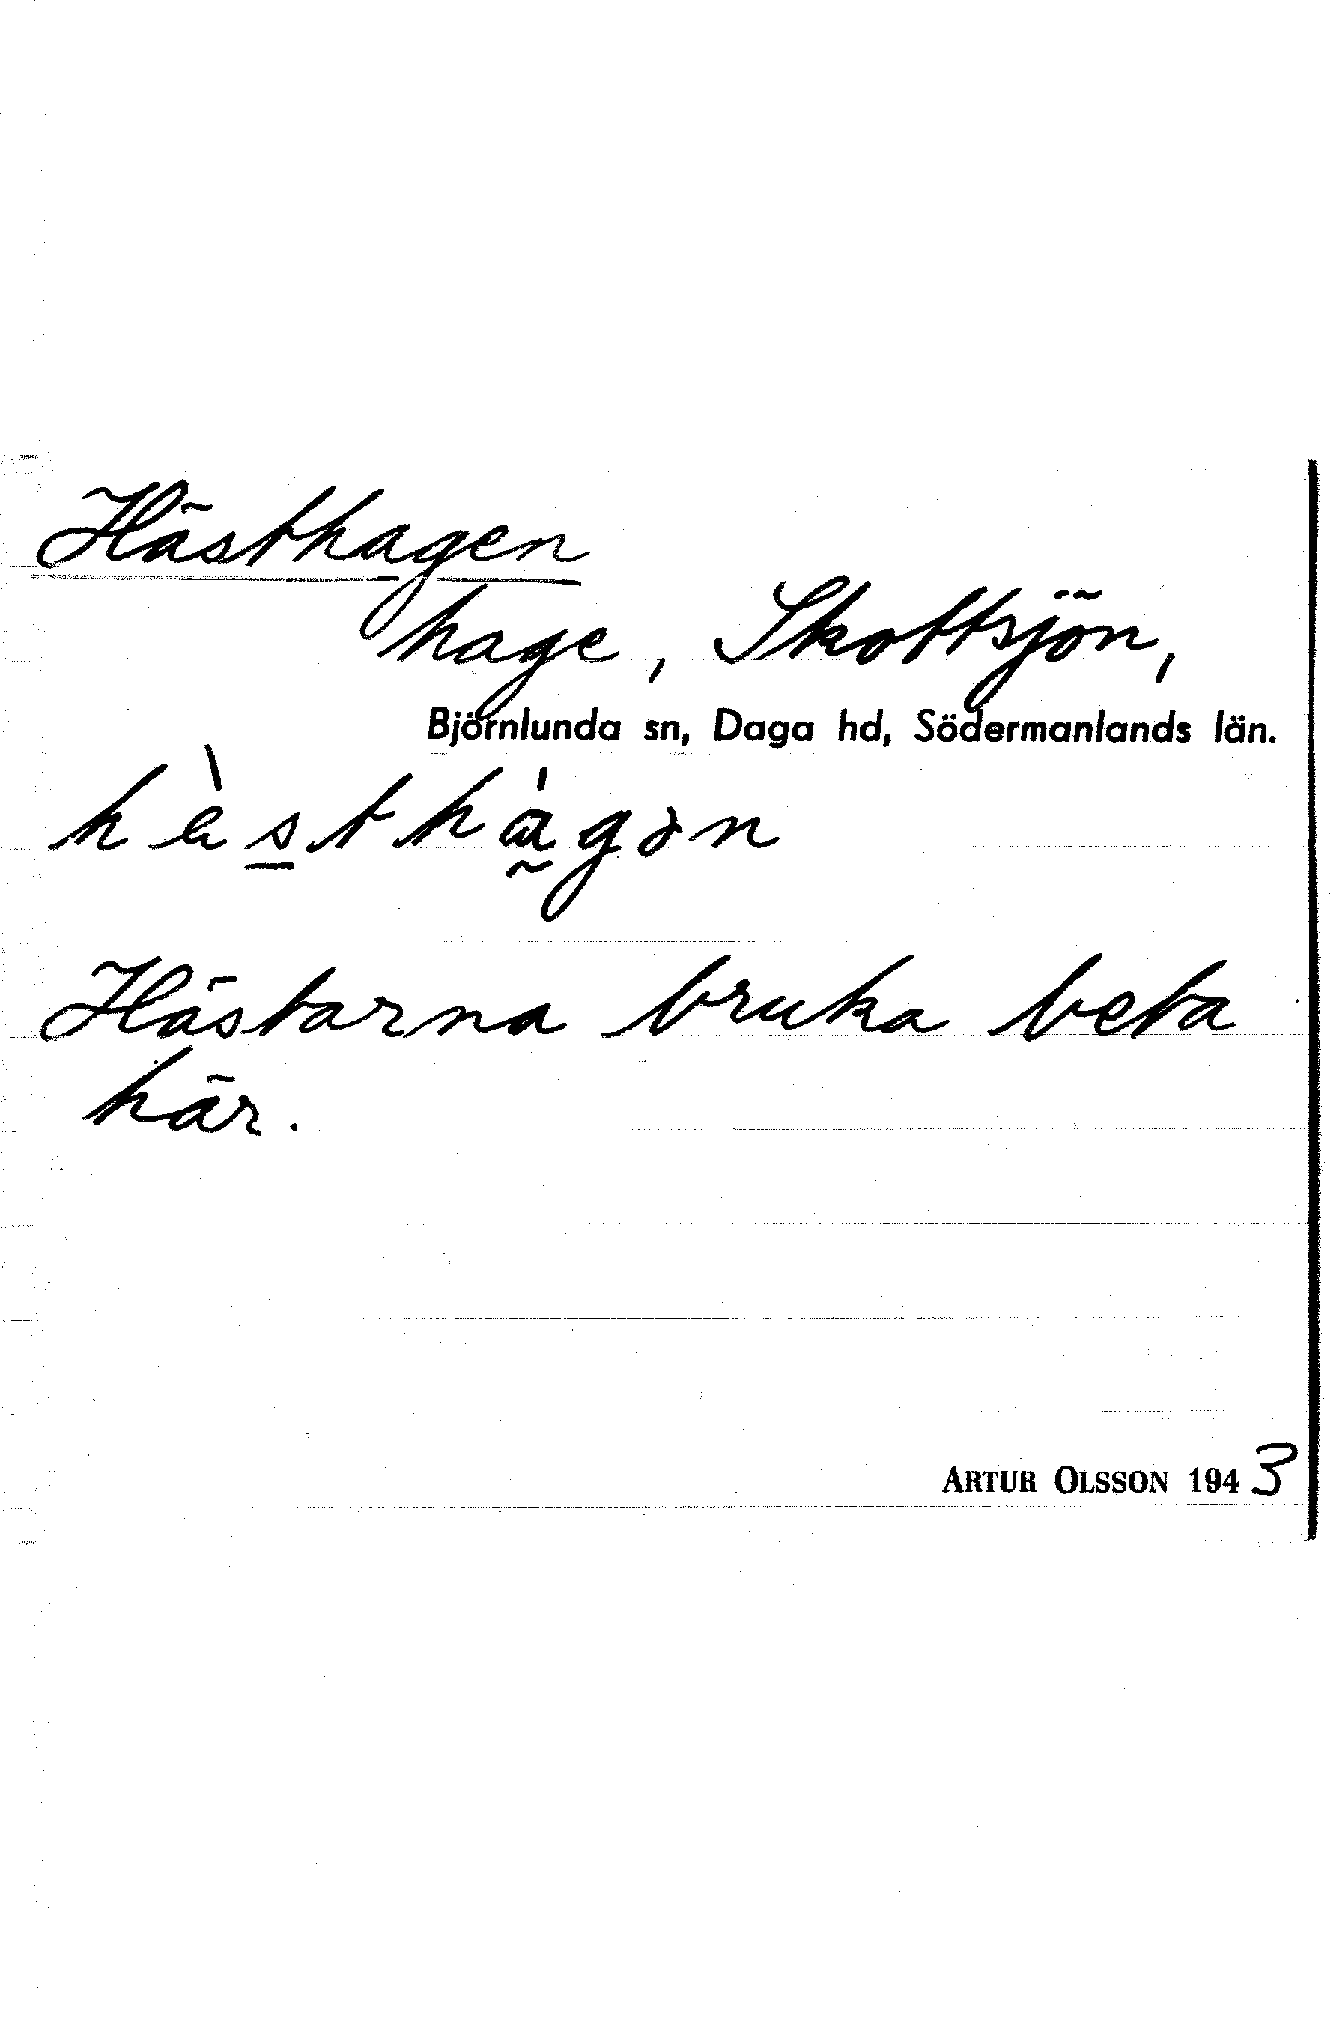 Hästhagen
hage, Skottsjön,
Björnlunda sn, Daga hd, Södermanlands län.
hὰsthàgən
Hästarna bruka beta
här.
ARTUR OLSSON 1943